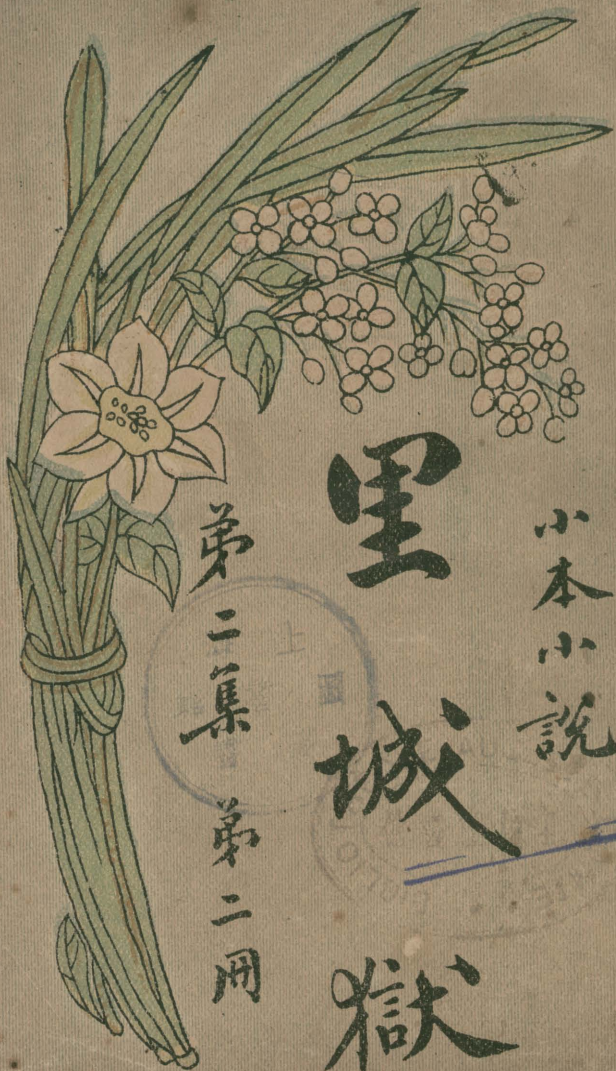 小本小說
里城獄
第二集 第二冊